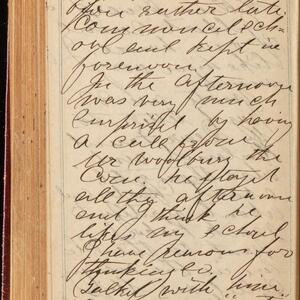 rather late
Commenced sch-
ool and kept in
forenoon
In the afternoon
was very much
surprised by having
a call from
Mr Woolbury the
Com. he stayed
all the afternoon
and I think he
likes my school
I have reasons for
thinking so
talked with him